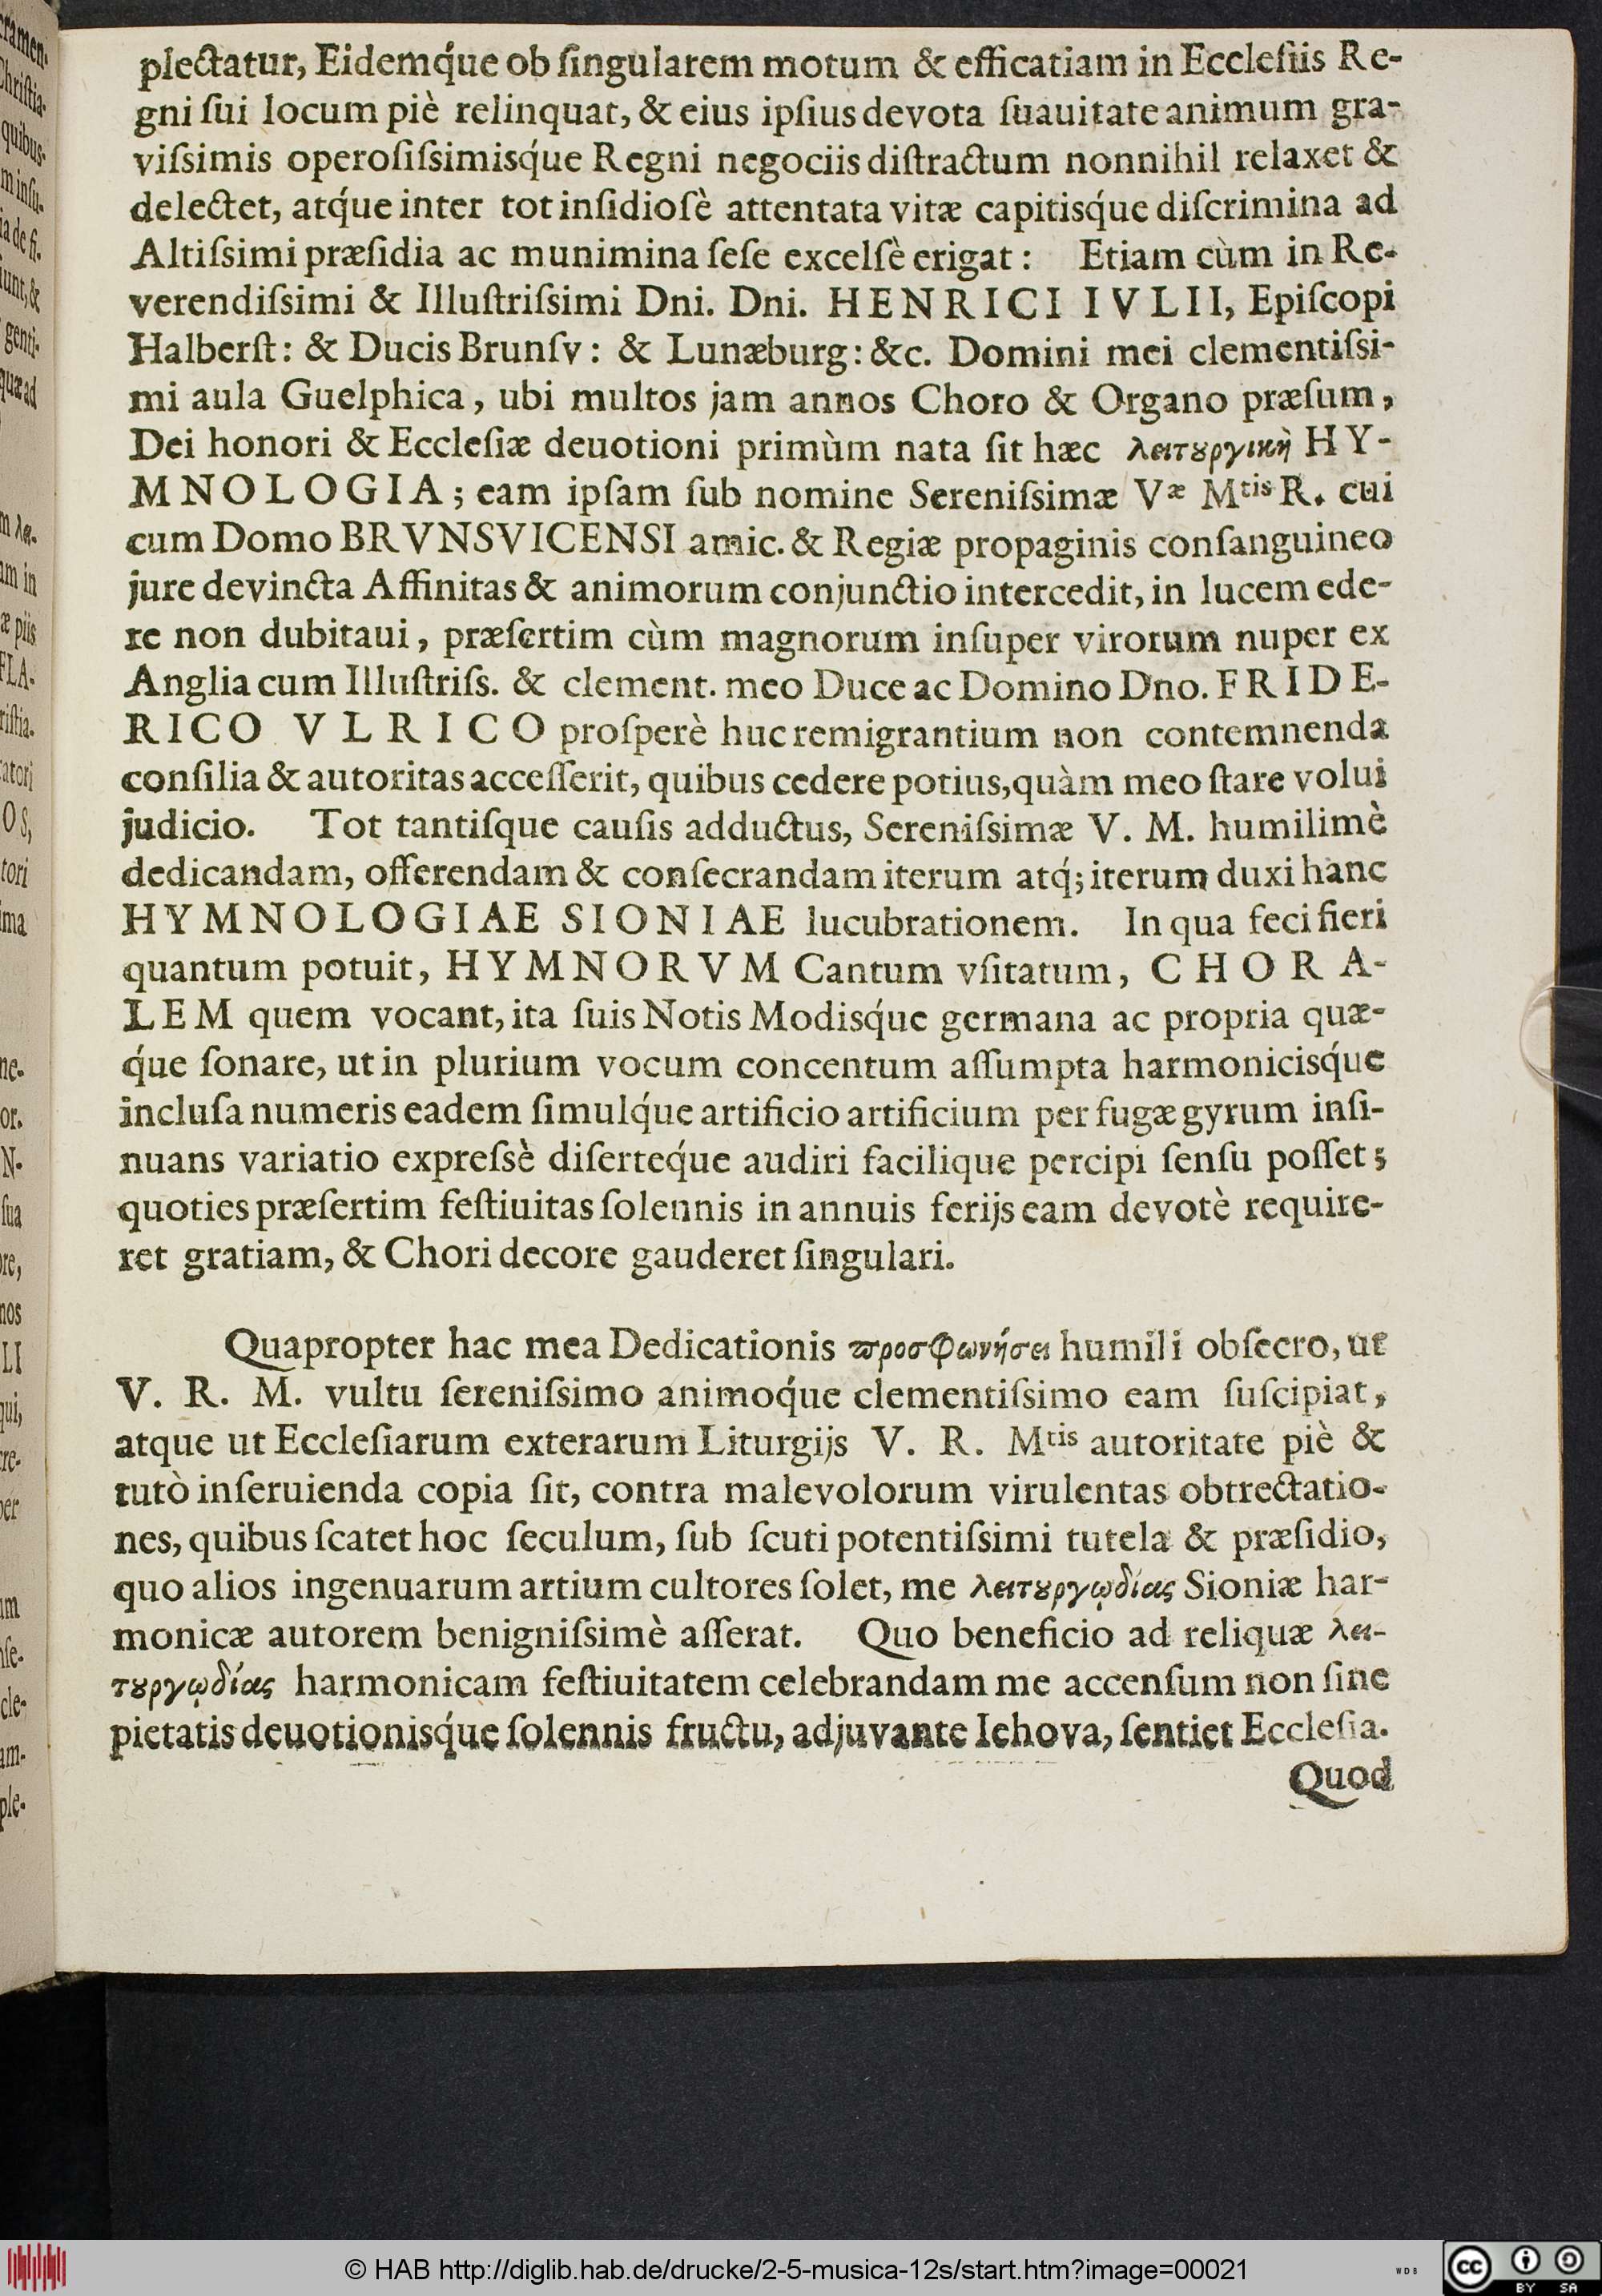 plectatur, Eidemq́ue ob ſingularem motum & efficatiam in Eccleſiis Re-
gni ſui locum piè relinquat, & eius ipſius devota ſuauitate animum gra-
viſsimis operoſiſsimisq́ue Regni negociis diſtractum nonnihil relaxet &
delectet, atq́ue inter tot inſidioſè attentata vitæ capitisq́ue diſcrimina ad
Altiſsimi præſidia ac munimina ſeſe excelſè erigat: Etiam cùm in Re-
verendiſsimi & Illuſtriſsimi Dni. Dni. HENRICI IVLII, Epiſcopi
Halberſt: & Ducis Brunſv: & Lunæburg: &c. Domini mei clementiſsi-
mi aula Guelphica, ubi multos jam annos Choro & Organo præſum,
Dei honori & Eccleſiæ deuotioni primùm nata ſit hæc λειτȣργικὴ HY-
MNOLOGIA; eam ipſam ſub nomine Sereniſsimæ Væ Mtis R. cui
cum Domo BRVNSVICENSI amic. & Regiæ propaginis conſanguineo
jure devincta Affinitas & animorum conjunctio intercedit, in lucem ede-
re non dubitaui, præſertim cùm magnorum inſuper virorum nuper ex
Anglia cum Illuſtriſs. & clement. meo Duce ac Domino Dno. FRIDE-
RICO VLRICO proſperè huc remigrantium non contemnenda
conſilia & autoritas acceſſerit, quibus cedere potius, quàm meo ſtare volui
judicio. Tot tantiſque cauſis adductus, Sereniſsimæ V. M. humilimè
dedicandam, offerendam & conſecrandam iterum atq́; iterum duxi hanc
HYMNOLOGIAE SIONIAE lucubrationem. In qua feci fieri
quantum potuit, HYMNORVM Cantum vſitatum, CHORA-
LEM quem vocant, ita ſuis Notis Modisq́ue germana ac propria quæ-
q́ue ſonare, ut in plurium vocum concentum aſſumpta harmonicisq́ue
incluſa numeris eadem ſimulq́ue artificio artificium per fugæ gyrum inſi-
nuans variatio expreſsè diſerteq́ue audiri facilique percipi ſenſu poſſet;
quoties præſertim feſtiuitas ſolennis in annuis ferijs eam devotè require-
ret gratiam, & Chori decore gauderet ſingulari.
Quapropter hac mea Dedicationis ϖροσφωνήσει humili obſecro, ut
V. R. M. vultu ſereniſsimo animoq́ue clementiſsimo eam ſuſcipiat,
atque ut Eccleſiarum exterarum Liturgijs V. R. Mtis autoritate piè &
tutò inſeruienda copia ſit, contra malevolorum virulentas obtrectatio-
nes, quibus ſcatet hoc ſeculum, ſub ſcuti potentiſsimi tutela & præſidio,
quo alios ingenuarum artium cultores ſolet, me λειτȣργῳδίας Sioniæ har-
monicæ autorem benigniſsimè aſſerat. Quo beneficio ad reliquæ λει-
τȣργῳδίας harmonicam feſtiuitatem celebrandam me accenſum non ſine
pietatis deuotionisq́ue ſolennis fructu, adjuvante Iehova, ſentiet Eccleſia.
Quod
© HAB http://diglib.hab.de/drucke/2-5-musica-12s/start.htm?image=00021
WDB
cc BY SA